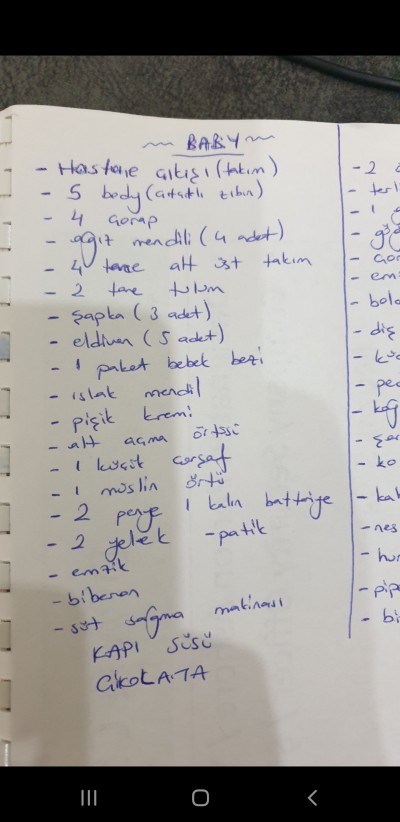 ~ BABY ~
- Hastane çıkışı (takım)
- 5 body (çıtçıtlı zıbın)
- 4 çorap
- ağız mendili (4 adet)
- 4 tane alt üst takım
- 2 tane tulum
- şapka (3 adet)
- eldiven (5 adet)
- 1 paket bebek bezi
- ıslak mendil
- pişik kremi
- alt açma örtüsü
- 1 küçük çarşaf
- 1 müslin örtü
- 2 penye 1 kalın battniye
- 2 yelek - patik
- emzik
- biberon
- süt sağma makinası
KAPI SÜSÜ
ÇİKOLATA
- 2
- terl
- 1
- em
- diş
- kü
- ko
- nes
- pipe
- bi